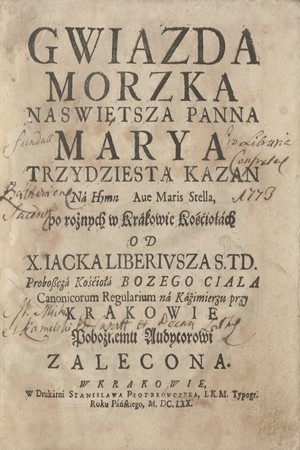 GWIAZDA
MORZKA
NASWIĘTSZA PANNA
MARYA
TRZYDZIESTĄ KAZAN
Ná Hymn Aue Maris Stella,
1773
po rożnych w Krákowie Kośćiołách
OD
X. IACKA LIBERIVSZA S. TD.
Proboszczá Kośćiołá BOZEGO CIALA
Canonicorum Regularium ná Káźimierzu przy
KRAKOWIE
Pobożnemu Audytorowi
ZALECONA.
W KRAKOWIE,
W Drukárni STANISŁAWA PIOTRKOWCZYKA, I. K. M. Typogr.
Roku Páńskiego, M. DC. LXX.